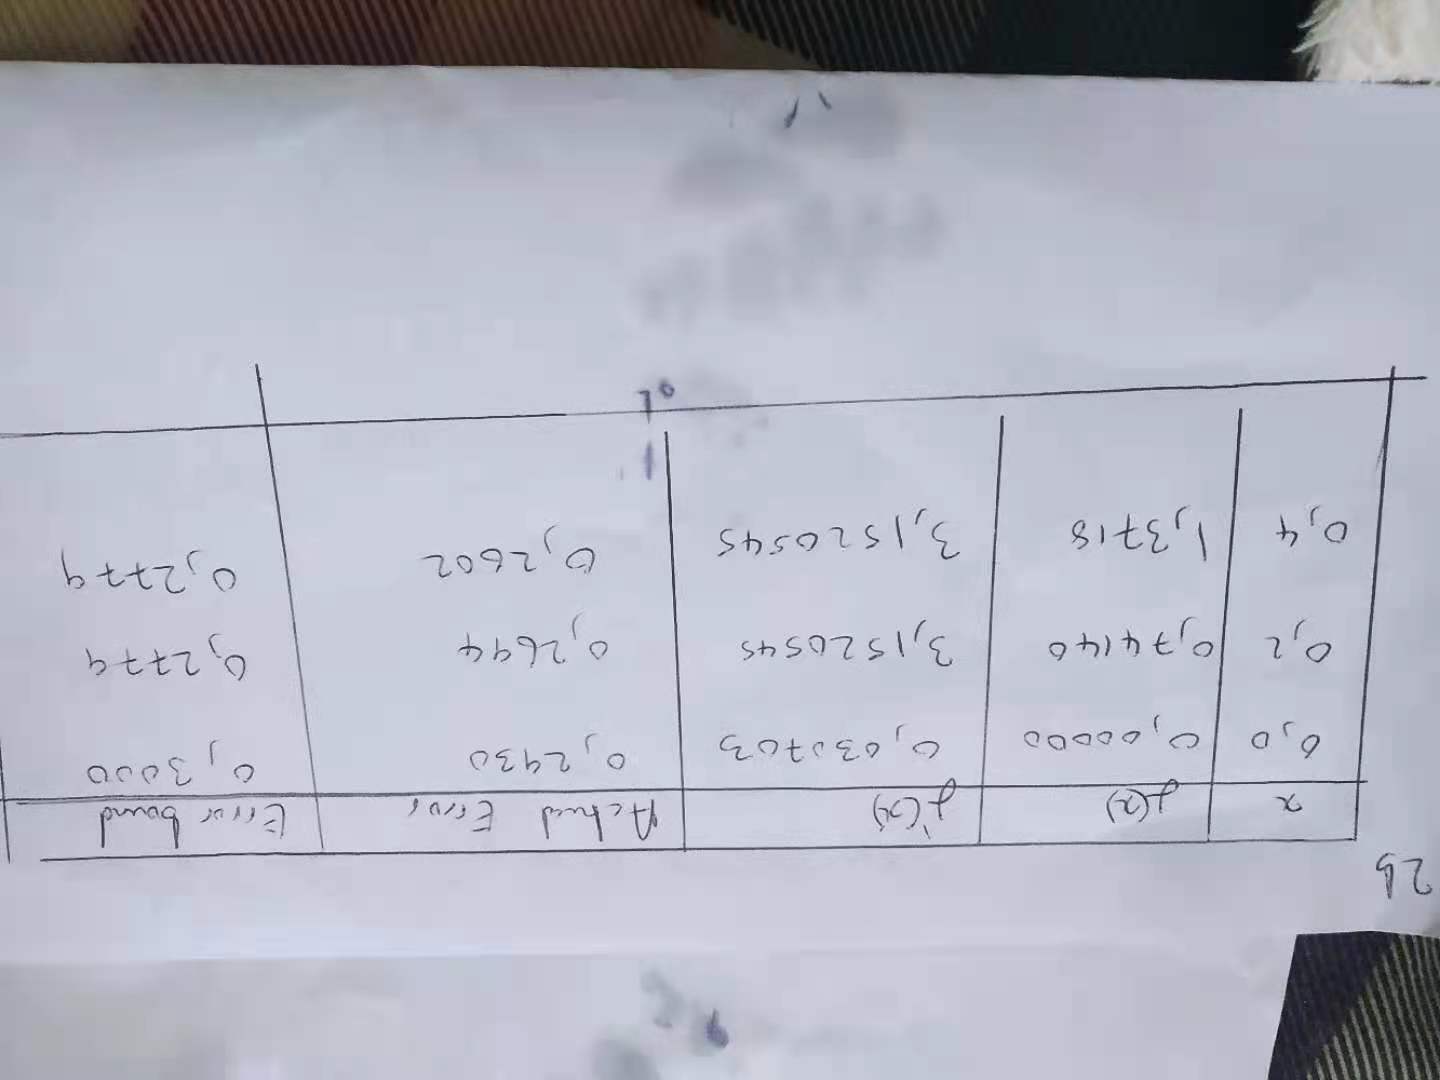 2b
x f(x) f'(x) Actual Error Error bound
0,0 0,00000 0,030703 0,2930 0,3000
0,2 0,74140 3,1520545 0,2694 0,2779
0,4 1,3718 3,1520545 0,2602 0,2779